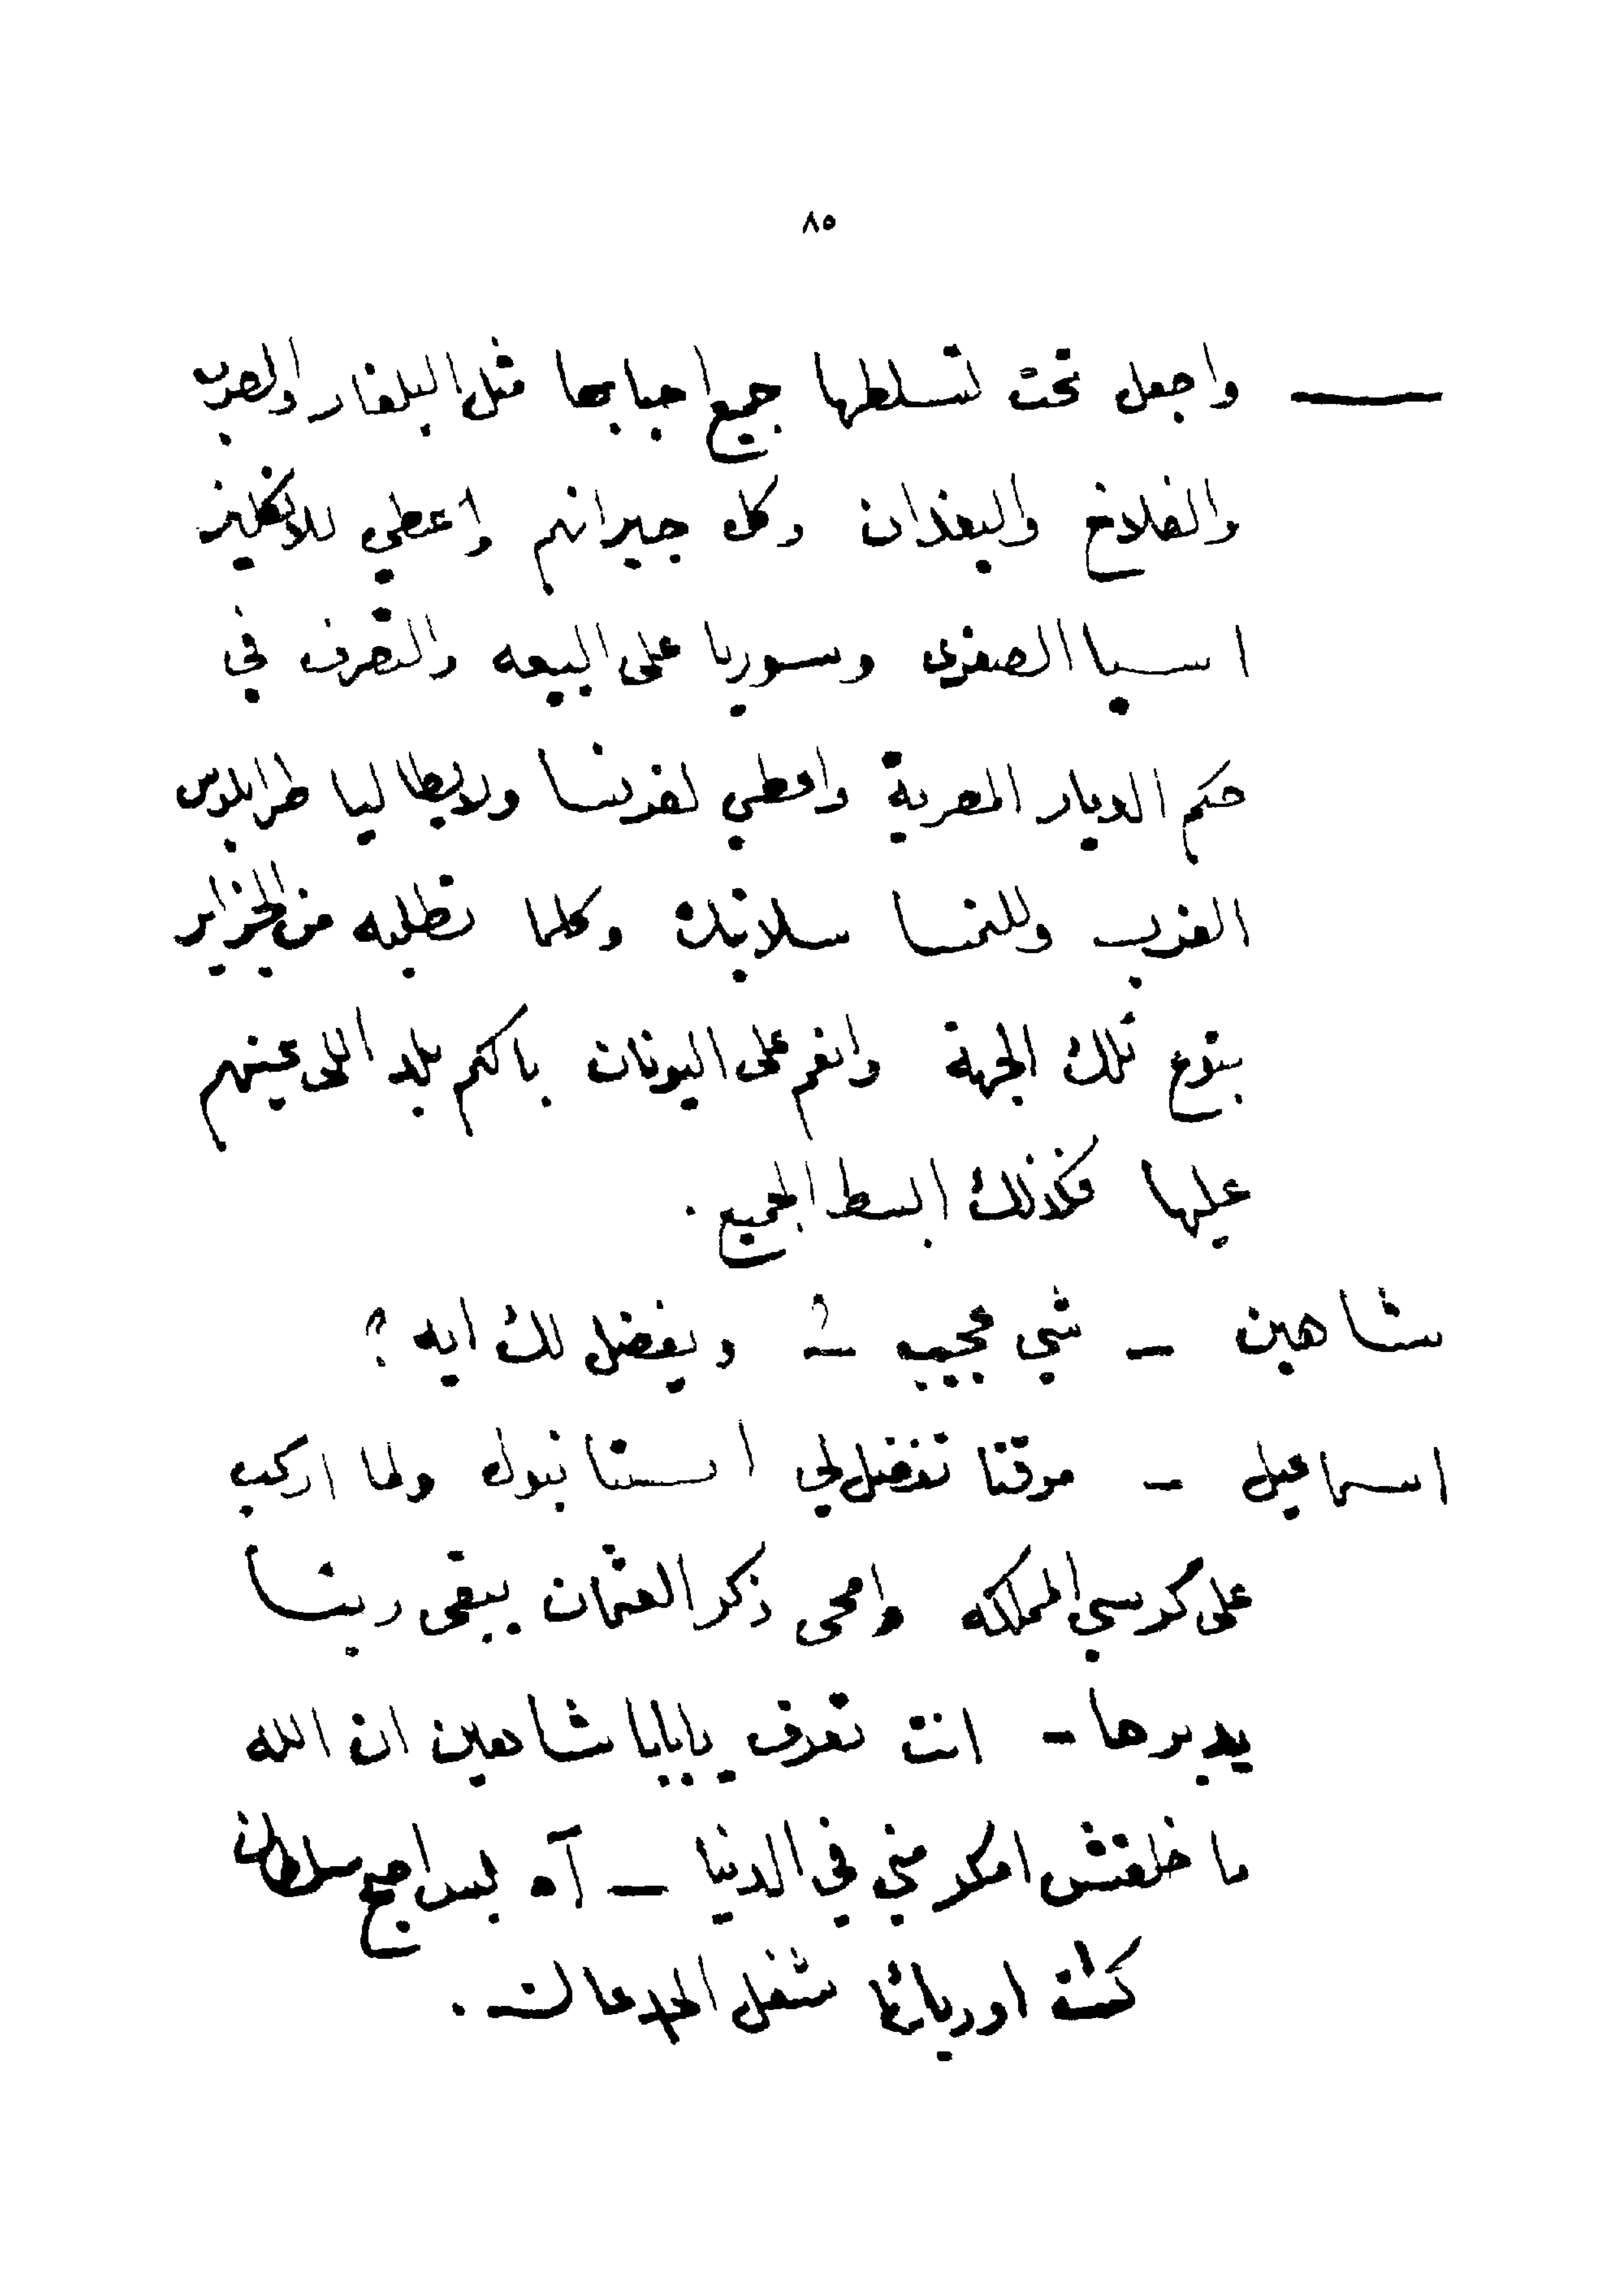 ٨٥
— واجعل تحت تسلطها جميع احبابها مثل البلغار والصرب
والفلاخ والبغدان وكل جيرانهم واعطي للانكليز
اسيا الصغرى وسوريا على البيعه والتصرف في
حكم الديار المصرية واعطي لفرنسا ولايطاليا طرابلوس
الغرب وللنمسا سلانيك وكلما تطلبه من الجزاير
بتوع تلك الجهة وانعم على اليونان باكم بلد اللي عينهم
عليها فكذلك ابسط الجميع .
شاهين - شي عجيب - ؟ ويفضل لك ايه ؟
اسماعيل - موقتا تفضل لي استانبول ولما اركب
على كرسي المملكه وامحى ذكر العثمان يبقى ربنا
يدبرها - انت تعرف يابابا شاهين ان الله
ما خلقش امكر مني في الدنيا - آه بس اصح سلطان
كنت اوريلك شغل الجدعان .